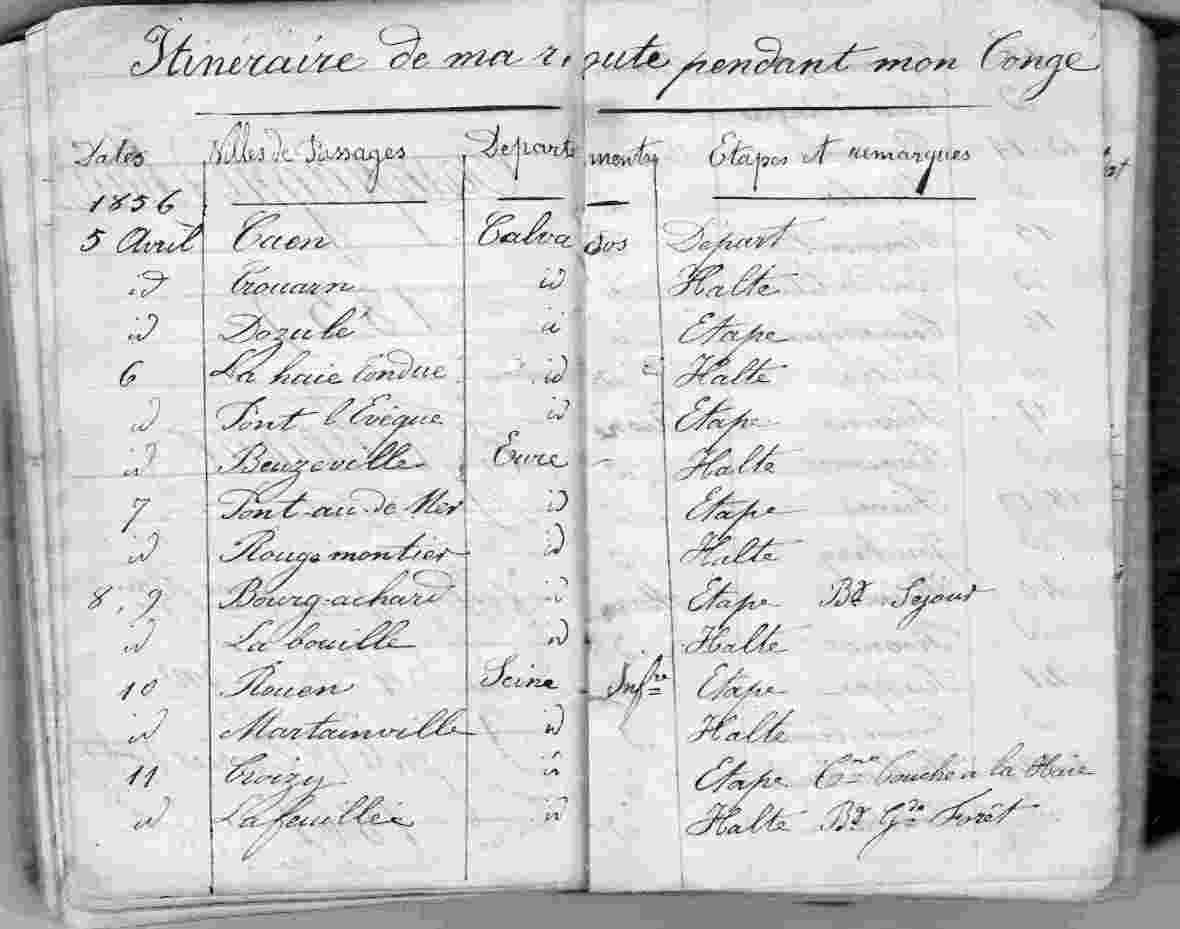 Itinéraire de ma route pendant mon Congé
Dates Villes de Passages Departements Etapes et remarques
1856
5 Avril Caen Calvados Départ
id Trouarn id Halte
id Dozulé id Etape
6 La haie Tondue id Halte
id Pont l'Evêque id Etape
id Beuzeville Eure Halte
7 Pont-au-de-Mer id Etape
id Rougemontier id Halte
8, 9 Bourg-achard id Etape Bd Sejour
id La bouille id Halte
10 Rouen Seine Infre Etape
id Martainville id Halte
11 Croizy id Etape Cne Couche a la Haie
id Lafeuillée id Halte Bd Gde Forêt